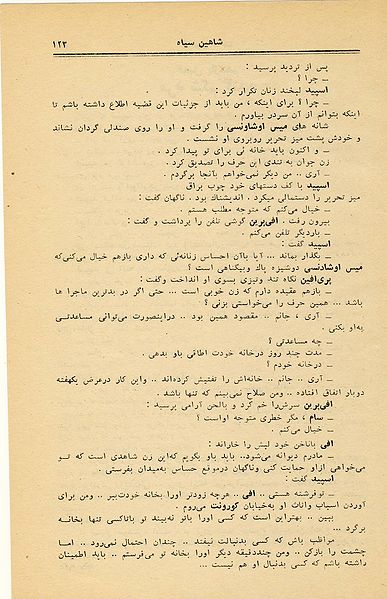 شاهین سیاه ۱۲۳
پس از تردید پرسید :
ــ چرا ؟
اسپید لبخند زنان تکرار کرد :
ــ چرا ؟ برای اینکه ، من باید از جزئیات این قضیه اطلاع داشته باشم تا
اینکه بتوانم از آن سردر بیاورم .
شانه های میس اوشانسی را گرفت و او را روی صندلی گردان نشاند
و خودش پشت میز تحریر روبروی او نشست .
ــ و اکنون باید خانه ئی برای تو پیدا کرد .
زن جوان به تندی این حرف را تصدیق کرد .
ــ آری .. من دیگر نمی‌خواهم بآنجا برگردم .
اسپید با کف دستهای خود چوب براق
میز تحریر را دستمالی میکرد . اندیشناک بود . ناگهان گفت :
ــ خیال می‌کنم که متوجه مطلب هستم .
بیرون رفت . افی‌برین گوشی تلفن را برداشت و گفت :
ــ باردیگر تلفن می‌کنم .
اسپید گفت :
ــ بگذار بماند ... آیا باآن احساس زنانه‌ئی که داری بازهم خیال می‌کنی‌که
میس اوشانسی دوشیزه پاک وبیگناهی است ؟
پری‌افین نگاه تند وتیزی بسوی او انداخت وگفت :
ــ بازهم عقیده دارم که زن خوبی است ... حتی اگر در بدترین ماجرا ها
باشد ... همین حرف را می‌خواستی بزنی ؟
ــ آری ، جانم .. مقصود همین بود .. دراینصورت می‌توانی مساعدتی
به‌او بکنی .
ــ چه مساعدتی ؟
ــ مدت چند روز درخانه خودت اطاقی باو بدهی .
ــ درخانه خودم ؟
ــ آری .. جانم .. خانه‌اش را تفتیش کرده‌اند .. واین کار درعرض یکهفته
دوبار اتفاق افتاده .. ومن صلاح نمی‌بینم که تنها باشد .
افی‌برین سرش‌را خم کرد و بالحن آرامی پرسید :
ــ سام ، مگر خطری متوجه اواست ؟
ــ خیال می‌کنم .
افی باناخن خود لبش را خاراند :
ــ مادرم دیوانه می‌شود.. باید باو بگویم که‌این زن شاهدی است که تو
می‌خواهی ازاو حمایت کنی وناگهان درموقع حساس به‌میدان بفرستی .
اسپید گفت :
ــ توفرشته هستی .. افی .. هرچه زودتر اورا بخانه خودت‌ببر .. ومن برای
آوردن اسباب واثاث او به‌خیابان کورونت می‌روم .
ببین .. بهتراین است که کسی اورا باتو نه‌بیند تو باتاکسی تنها بخانه
برگرد ...
مراظب باش که کسی بدنبالت نیفتد .. چندان احتمال نمی‌رود .. اما
چشمت را بازکن .. ومن چنددقیقه دیگر اورا بخانه تو می‌فرستم .. باید اطمینان
داشته باشم که کسی بدنبال او هم نیست ...